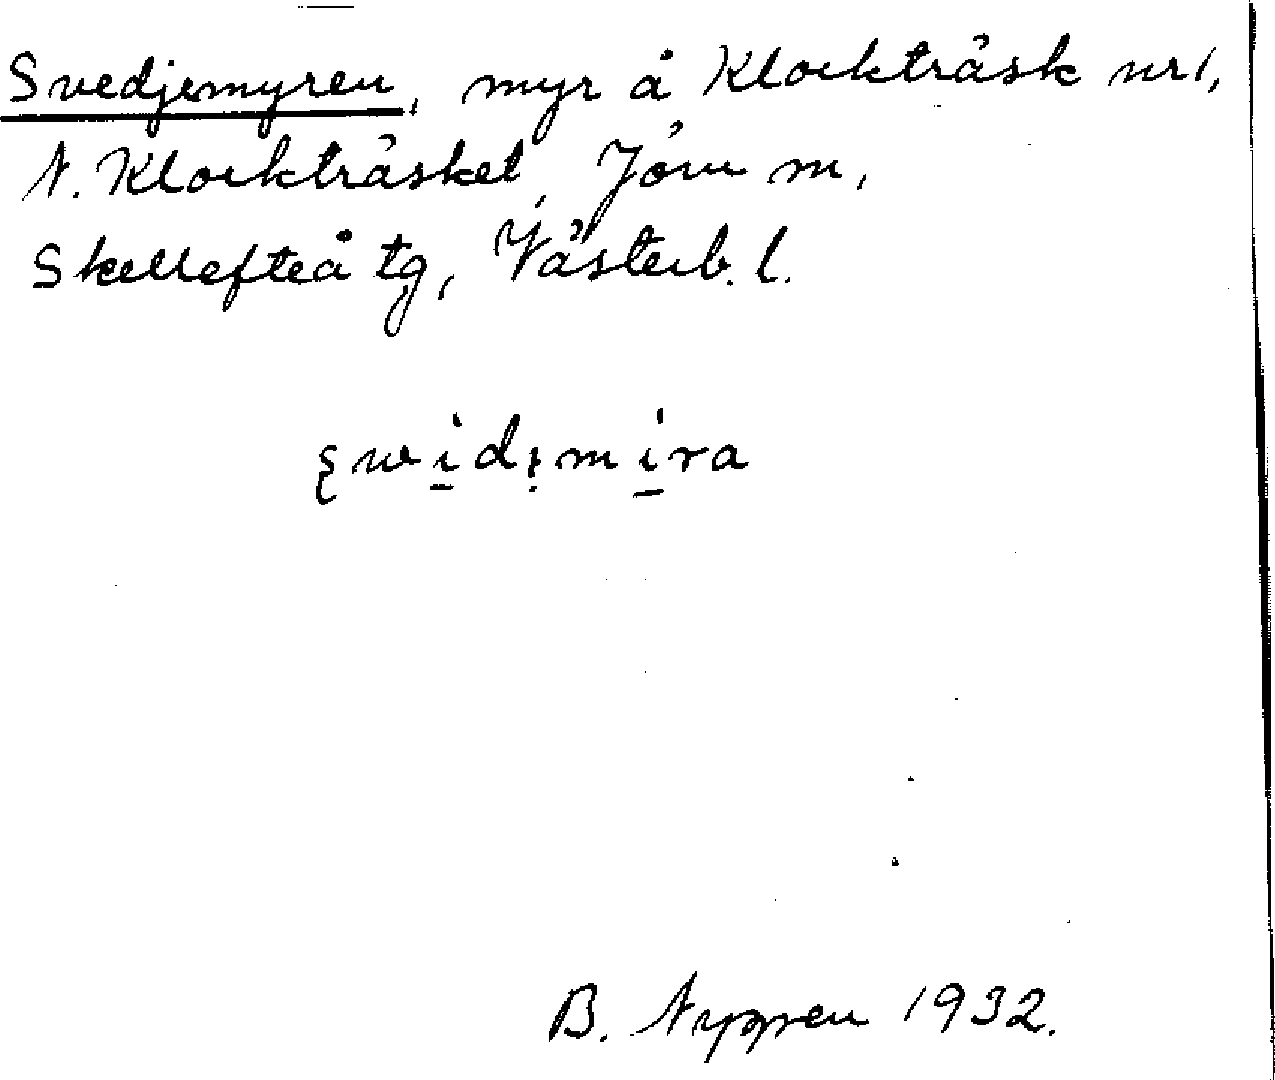 Svedjemyren, myr å Klockträsk nr 1,
N. Klockträsket, Jörn sn,
Skellefteå tg, Västerb. l.
B. Nygren 1932.